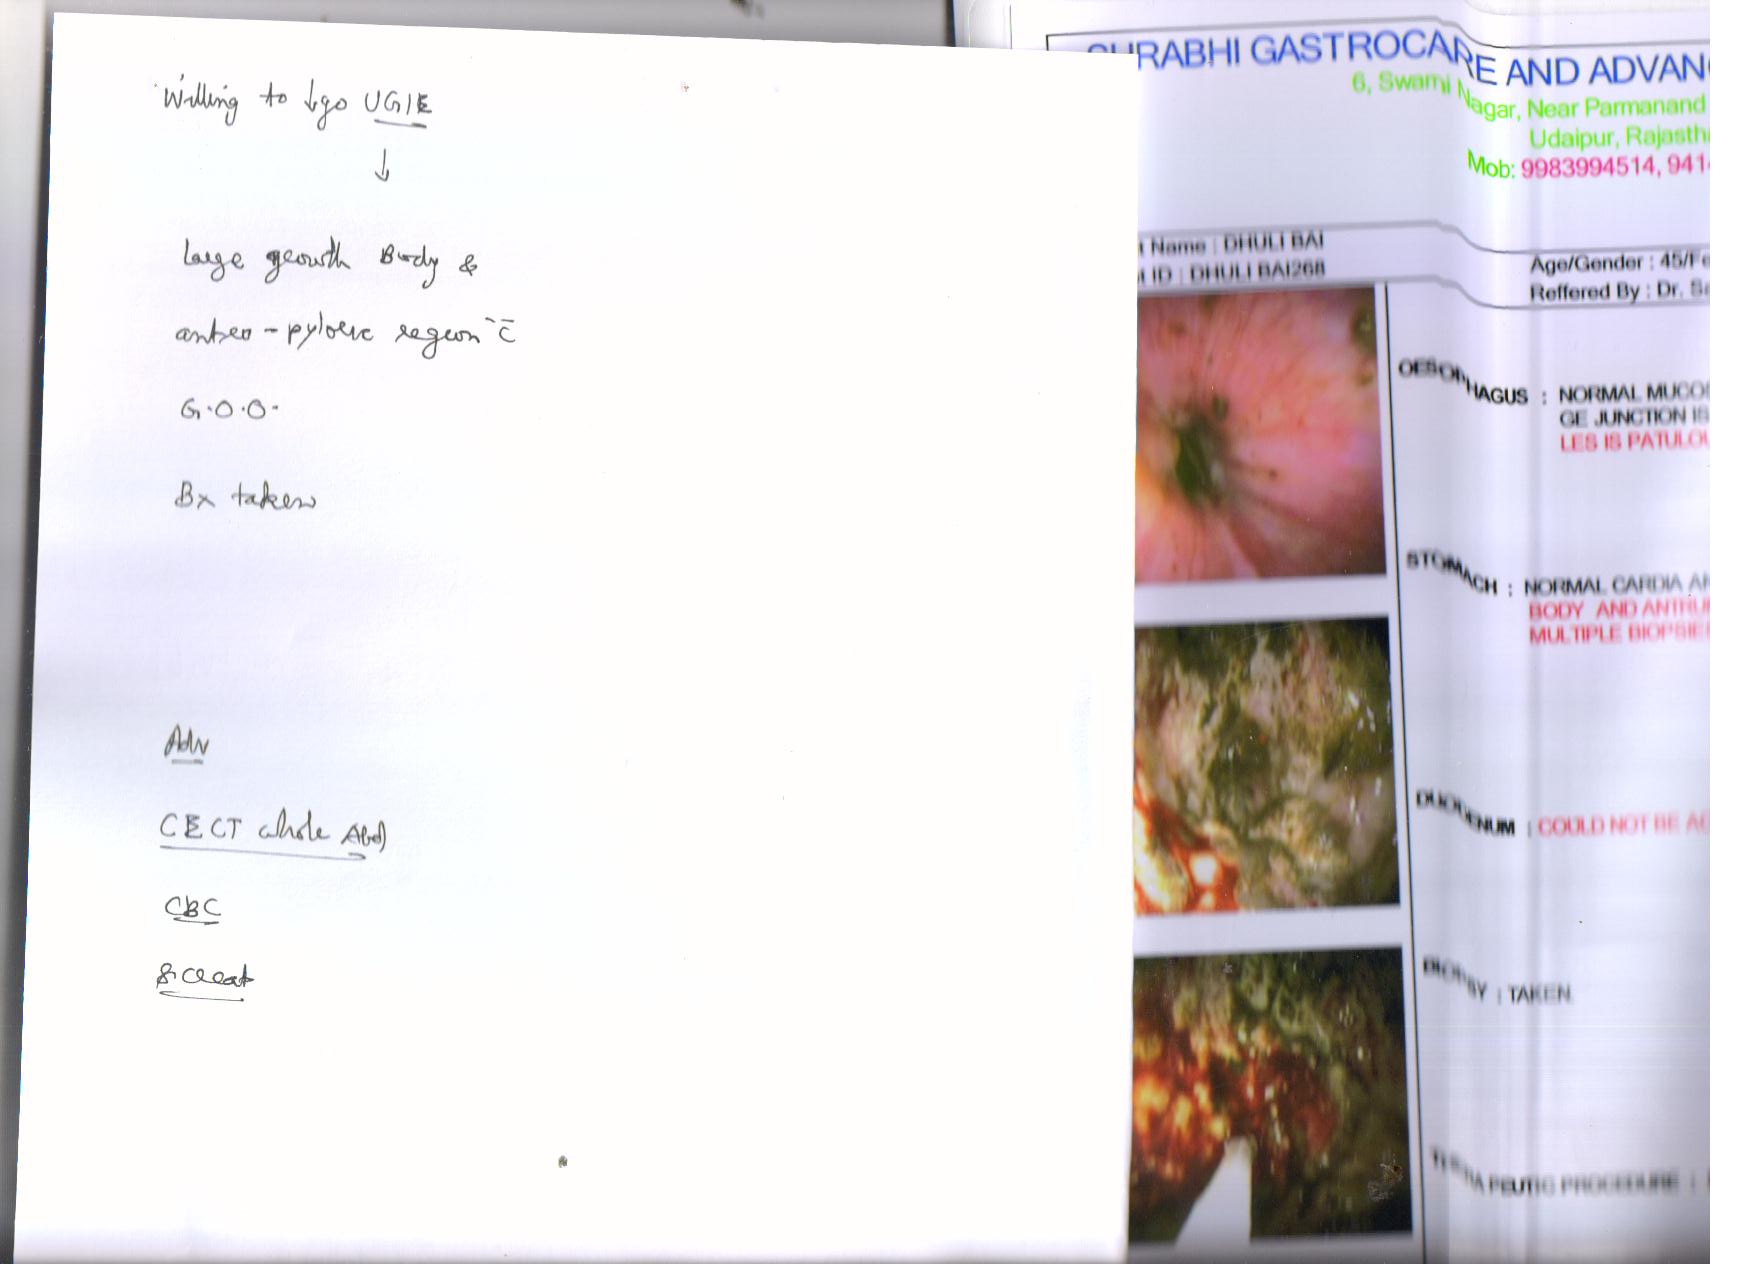 Willing to ↓go UGIE
↓
Large growth Body &
antro-pyloric region c̄
G.O.O.
Bx taken
Adv
CECT whole Abd
CBC
S. Creat
SURABHI GASTROCARE AND ADVAN
6, Swami Nagar, Near Parmanand
Udaipur, Rajastha
Mob: 9983994514, 941
t Name : DHULI BAI
t ID : DHULI BAI268
Age/Gender : 45/Fe
Reffered By : Dr. Sa
OESOPHAGUS : NORMAL MUCOS
GE JUNCTION IS
LES IS PATULOU
STOMACH : NORMAL CARDIA AN
BODY AND ANTRUM
MULTIPLE BIOPSIES
DUODENUM : COULD NOT BE AC
BIOPSY : TAKEN
THERAPEUTIC PROCEDURE :